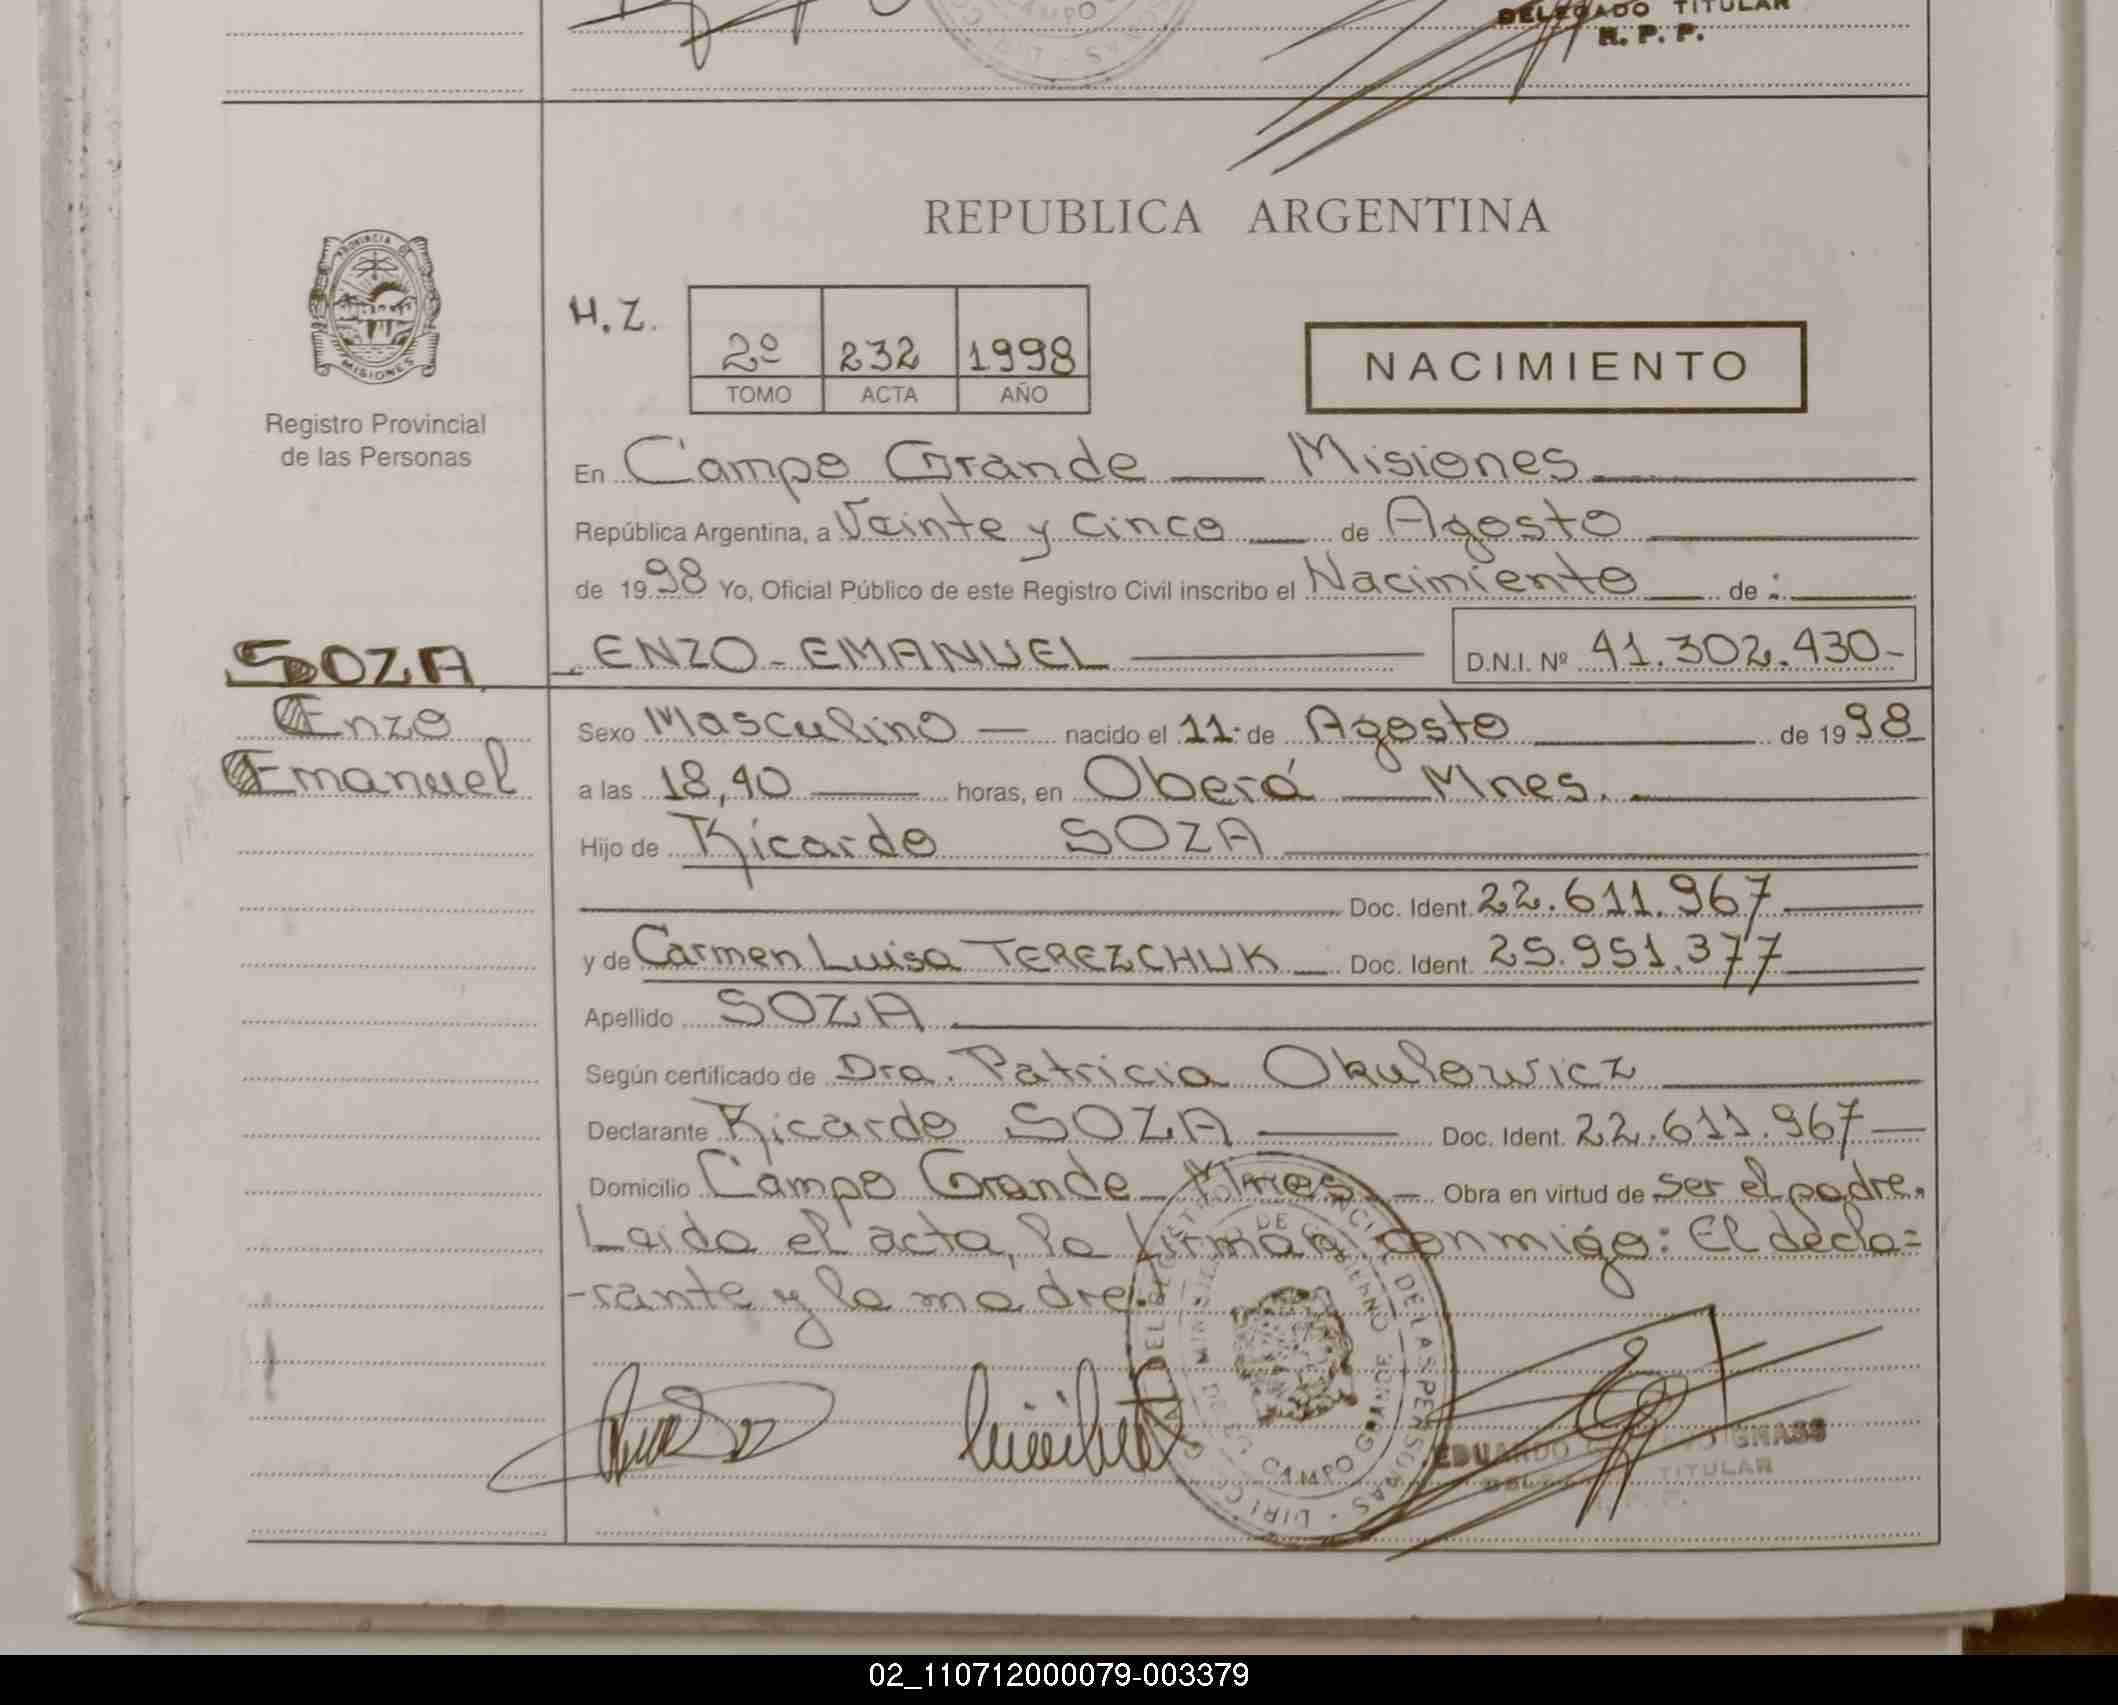 DELEGADO TITULAR
R. P. P.
CAMPO
REPUBLICA ARGENTINA
PROVINCIA DE
MISIONES
H. Z.
2º 232 1998
TOMO ACTA AÑO
NACIMIENTO
Registro Provincial
de las Personas
En Campo Grande Misiones
República Argentina, a Veinte y cinco de Agosto
de 1998 Yo, Oficial Público de este Registro Civil inscribo el Nacimiento de:
SOZA
ENZO - EMANUEL D.N.I. Nº 41.302.430-
Enzo
Emanuel
Sexo Masculino nacido el 11 de Agosto de 1998
a las 18,40 horas, en Oberá Mnes.
Hijo de Ricardo SOZA
Doc. Ident. 22.611.967
y de Carmen Luisa TEREZCHUK Doc. Ident. 25.951.377
Apellido SOZA
Según certificado de Dra. Patricia Okulowicz
Declarante Ricardo SOZA Doc. Ident. 22.611.967
Domicilio Campo Grande Mnes Obra en virtud de ser el padre.
Leida el acta, la firman conmigo: El decla=
-rante y la madre.
CAMPO GRANDE
EDUARDO GNASS
TITULAR
02_110712000079-003379